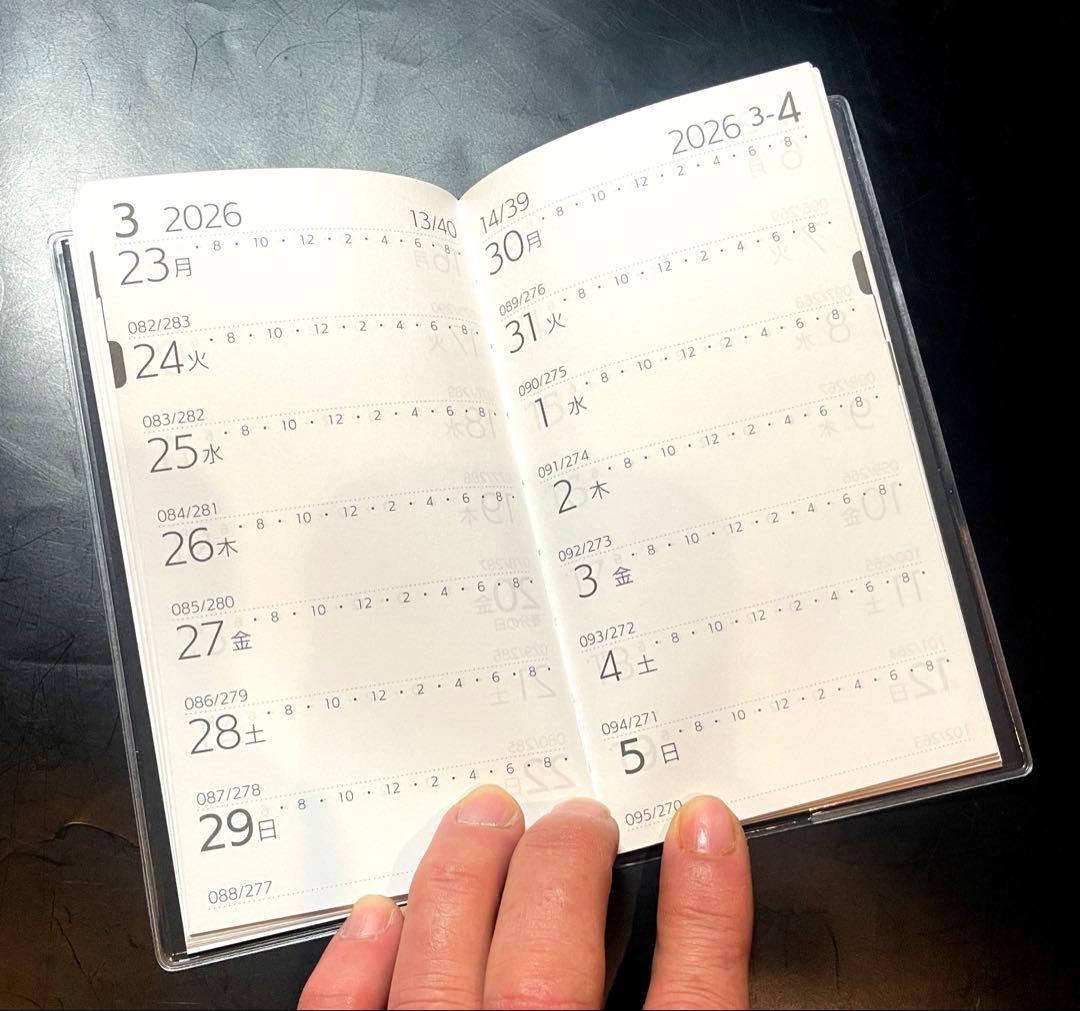 3 2026 13/40
23月 · 8 · 10 · 12 · 2 · 4 · 6 · 8 ·
082/283
24火 · 8 · 10 · 12 · 2 · 4 · 6 · 8 ·
083/282
25水 · 8 · 10 · 12 · 2 · 4 · 6 · 8 ·
084/281
26木 · 8 · 10 · 12 · 2 · 4 · 6 · 8 ·
085/280
27金 · 8 · 10 · 12 · 2 · 4 · 6 · 8 ·
086/279
28土 · 8 · 10 · 12 · 2 · 4 · 6 · 8 ·
087/278
29日 · 8 · 10 · 12 · 2 · 4 · 6 · 8 ·
088/277
2026 3-4
14/39
30月 · 8 · 10 · 12 · 2 · 4 · 6 · 8 ·
089/276
31火 · 8 · 10 · 12 · 2 · 4 · 6 · 8 ·
090/275
1水 · 8 · 10 · 12 · 2 · 4 · 6 · 8 ·
091/274
2木 · 8 · 10 · 12 · 2 · 4 · 6 · 8 ·
092/273
3金 · 8 · 10 · 12 · 2 · 4 · 6 · 8 ·
093/272
4土 · 8 · 10 · 12 · 2 · 4 · 6 · 8 ·
094/271
5日 · 8 · 10 · 12 · 2 · 4 · 6 · 8 ·
095/270